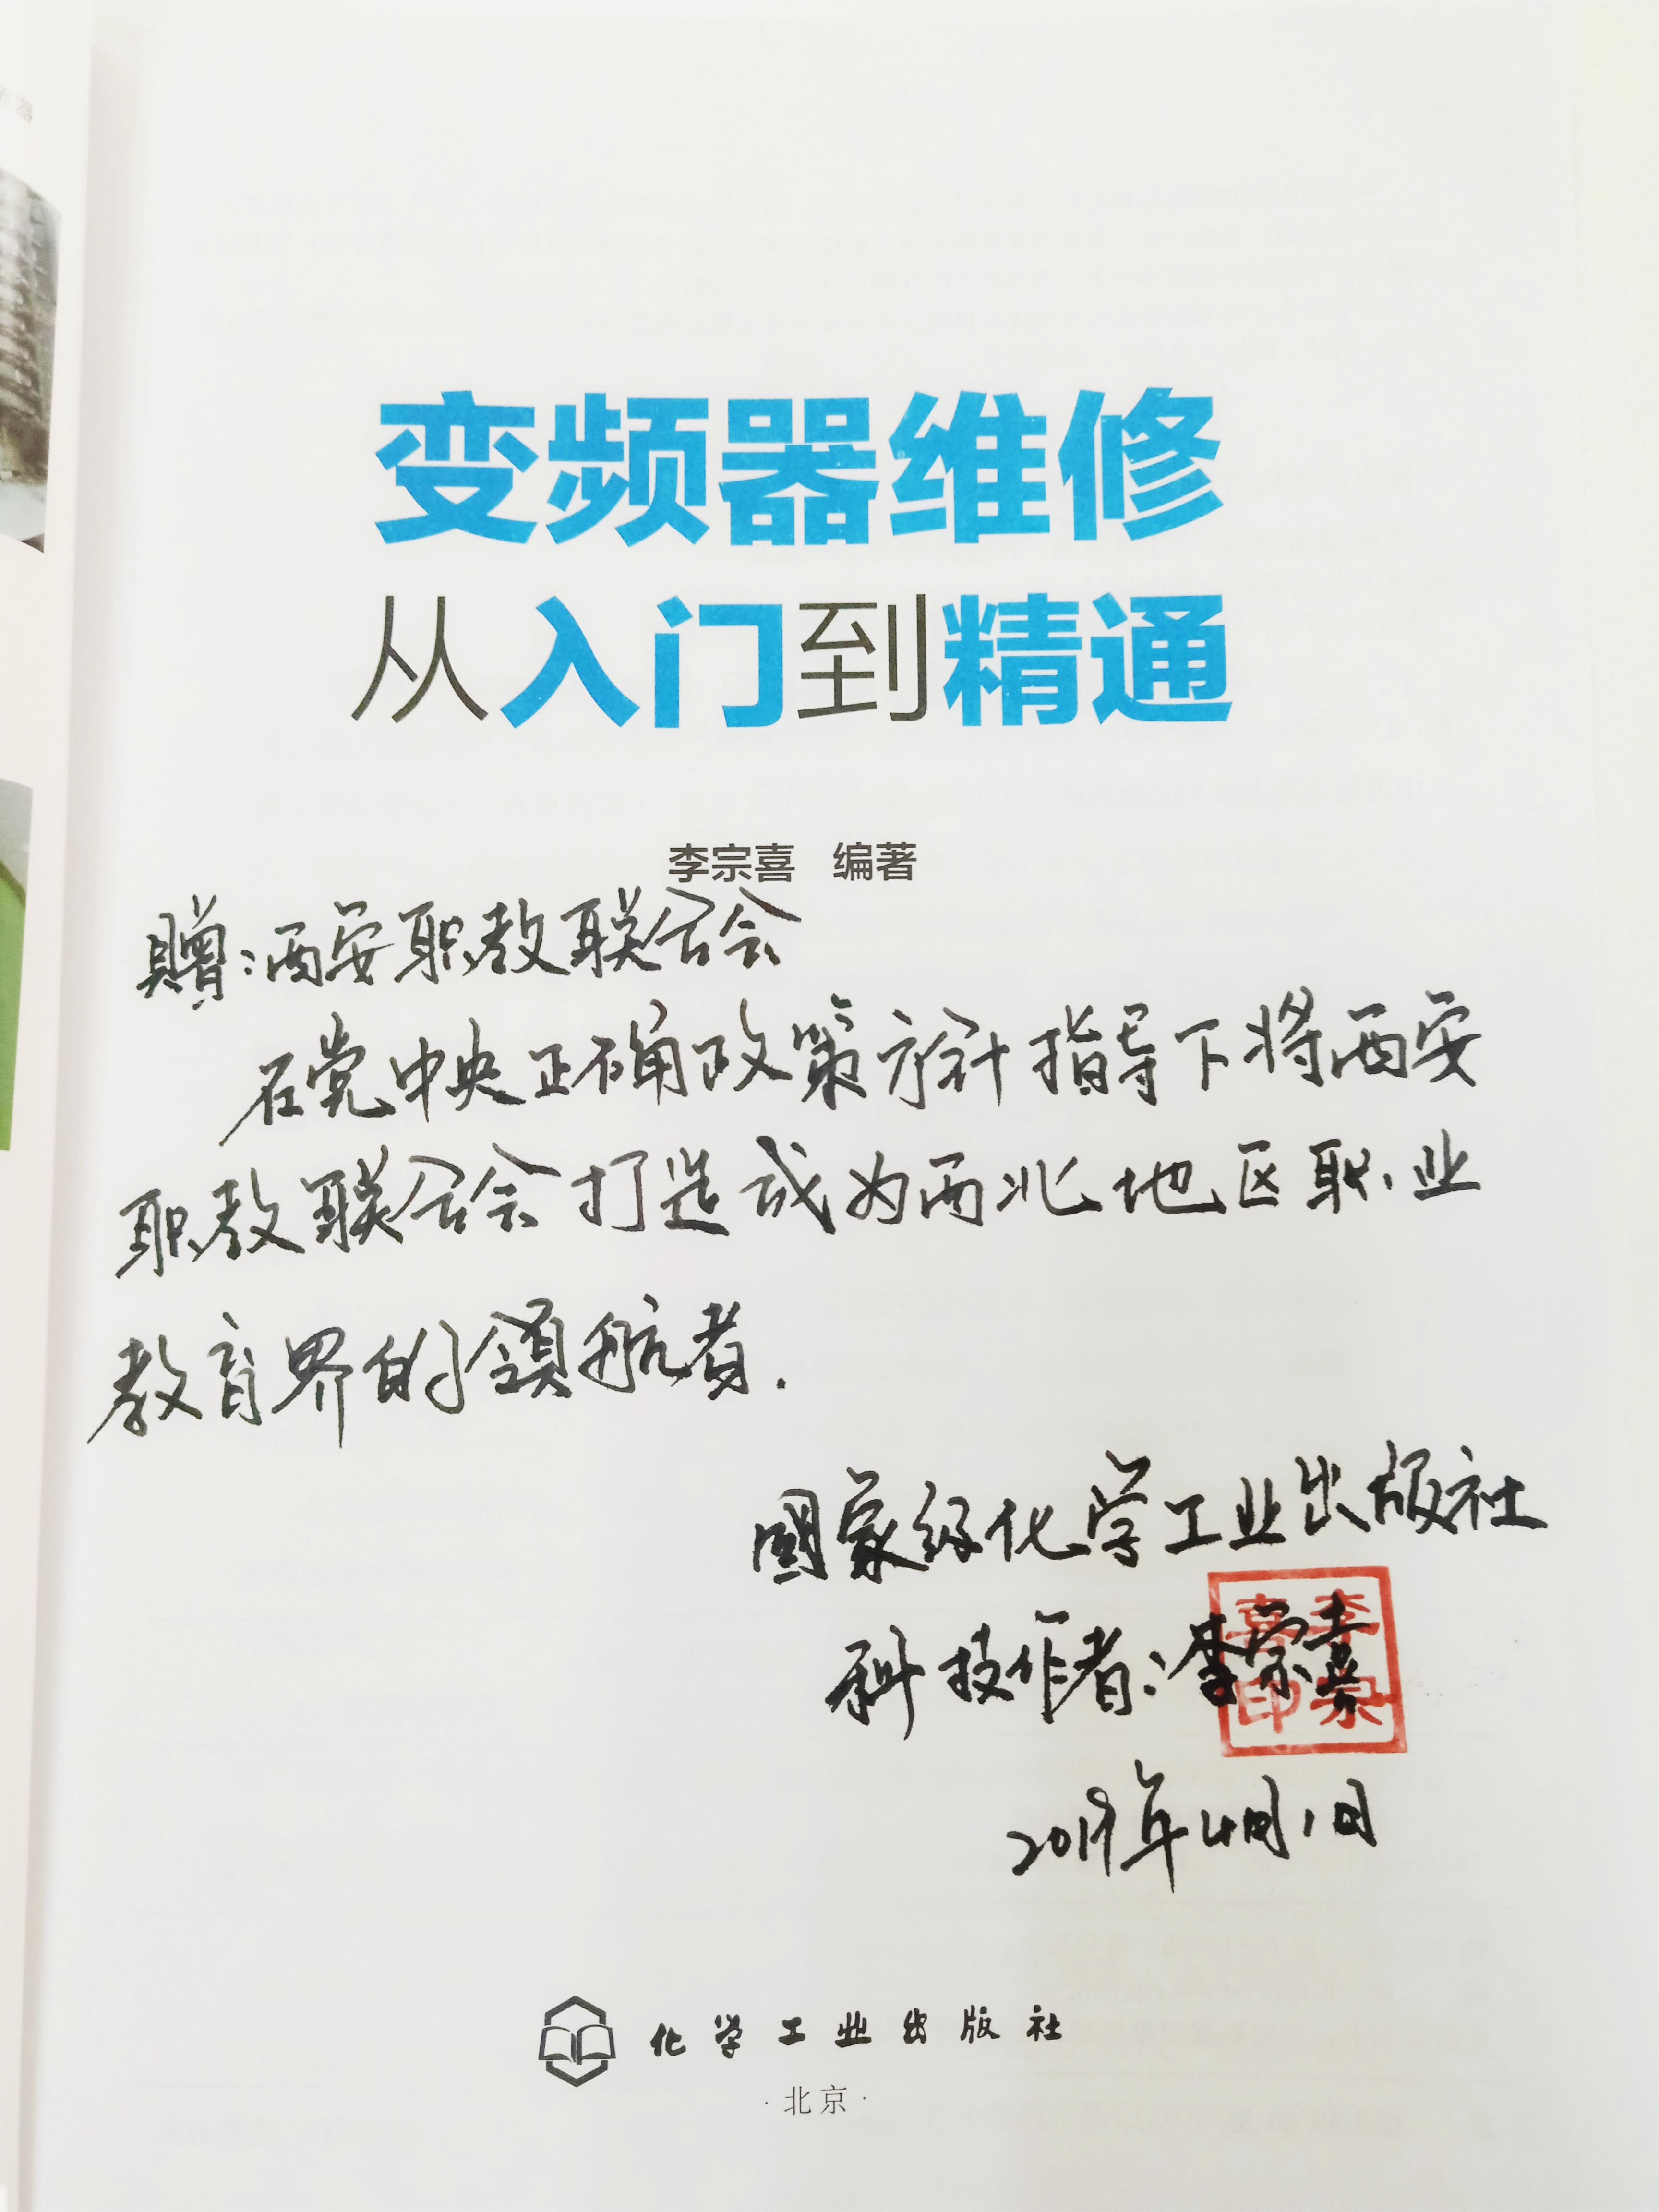 变频器维修
从入门到精通
李宗喜 编著
贈:西安职教联合会
在党中央正确政策方针指导下将西安
职教联合会打造成为西北地区职业
教育界的领航者.
國家级化学工业出版社
科技作者:李宗喜
李宗喜印
2019年4月1日
化学工业出版社
·北京·